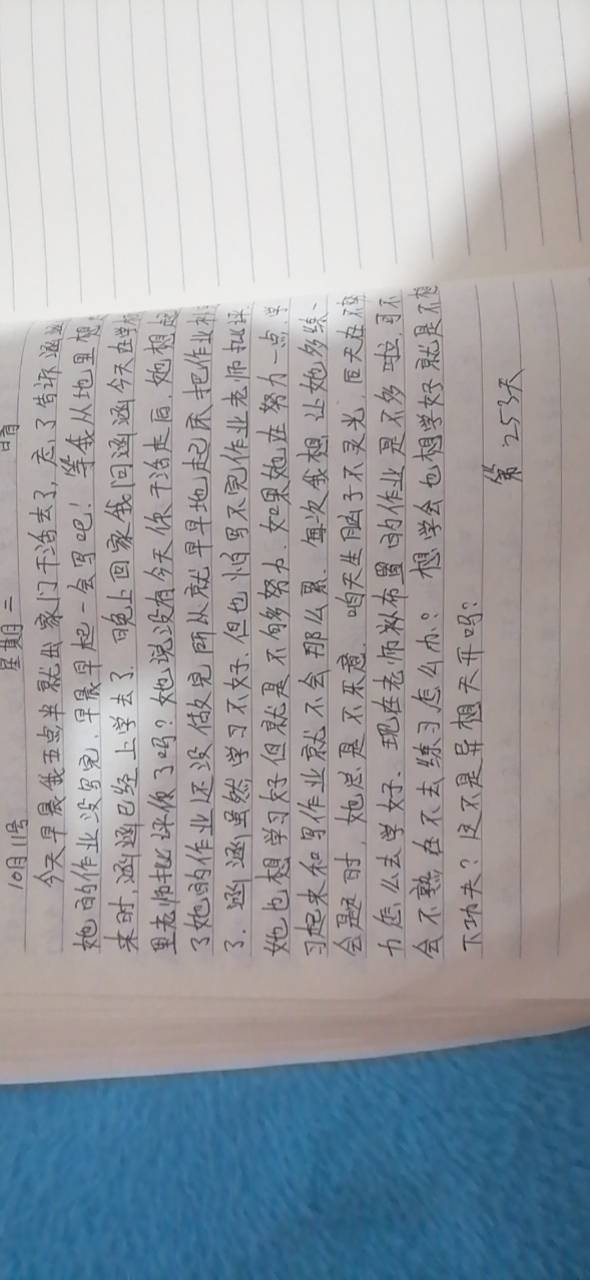 10月11号 星期二 晴
今天早晨我五点半就出家门干活去了,忘了告诉涵涵
她的作业没写完,早晨早起一会写吧!等我从地里想
来时,涵涵已经上学去了.晚上回家我问涵涵今天在学校
里老师批评你了吗?她说没有今天你干活走后,她想起
了她的作业还没做完所以就早早地起床把作业补
了.涵涵虽然学习不好.但也怕写不完作业老师批评.
她也想学习好但就是不何多努力.如果她在努力一点,学
习起来和写作业就不会那么累.每次我想让她多练、
会题时,她总是不乐意.咱天生脑子不灵光,后天在不
力怎么去学好.现在老师松布置的作业是不多啦,可不
会不熟在不去练习怎么办?想学会也想学好就是不想
下功夫?这不是异想天开吗?
第253天